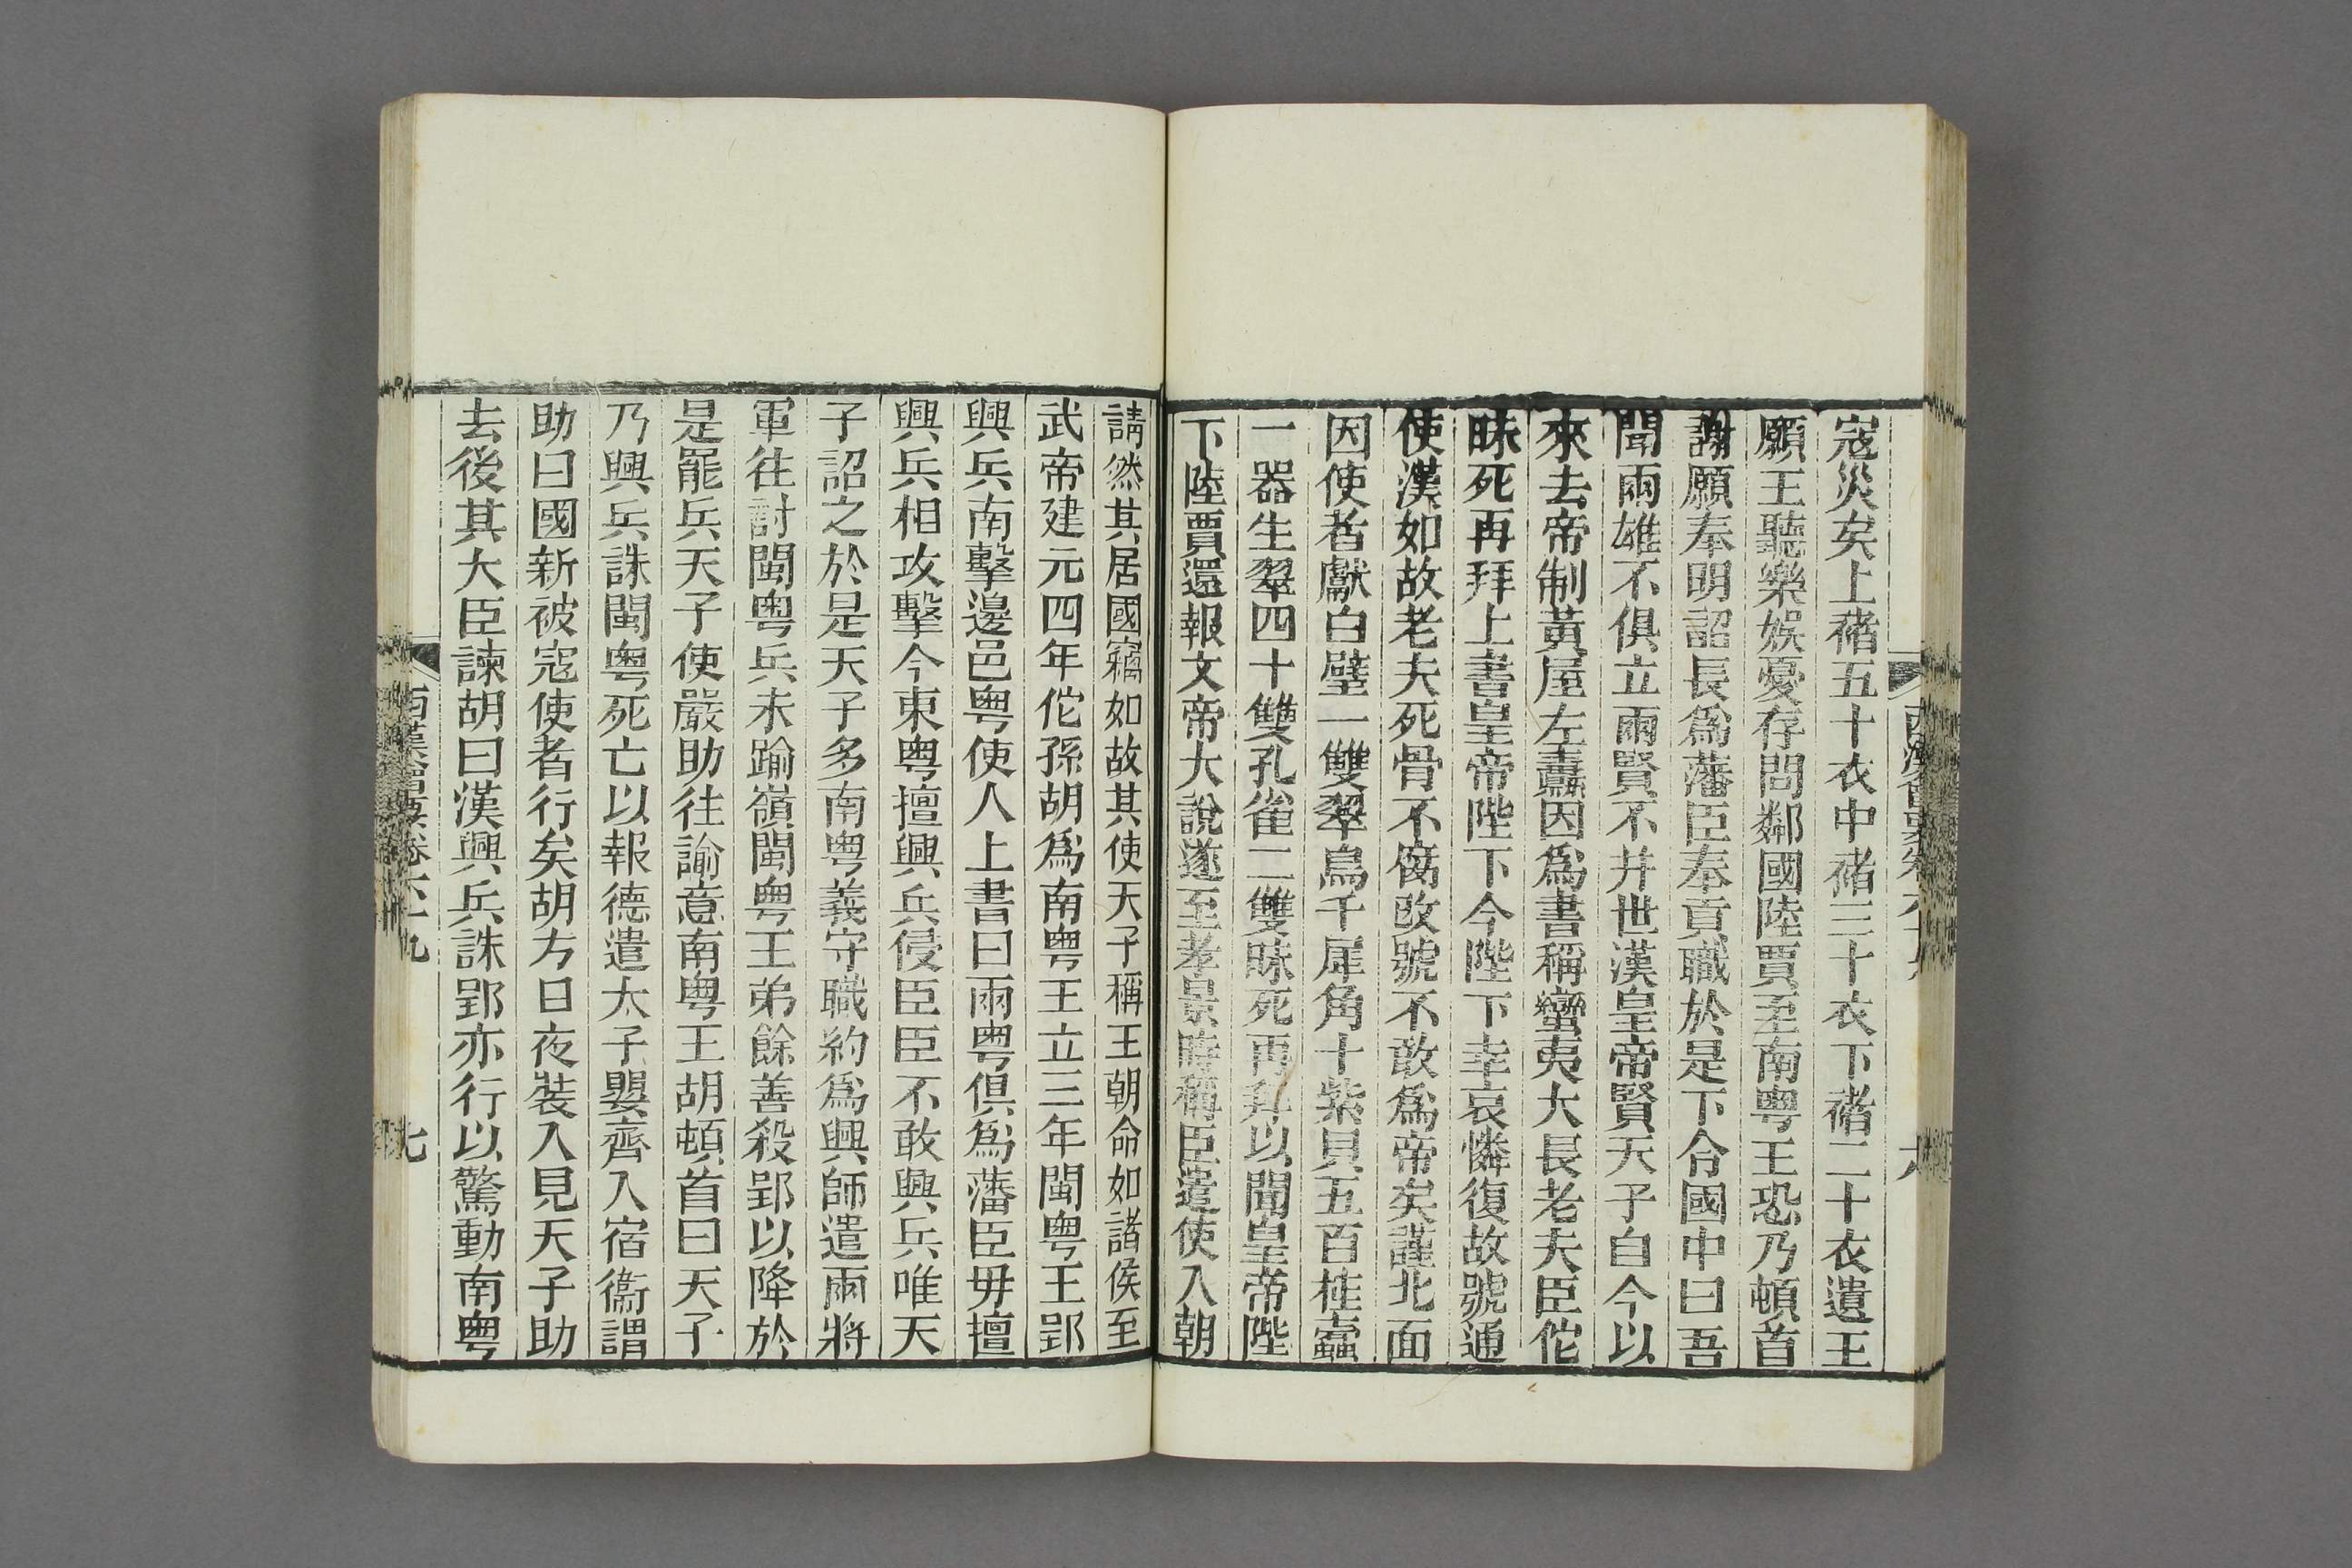 寇災矣上褚五十衣中褚三十衣下褚二十衣遺王
願王聽樂娛憂存問鄰國陸賈至南粤王恐乃頓首
謝願奉明詔長爲藩臣奉貢職於是下令國中曰吾
聞兩雄不俱立兩賢不并世漢皇帝賢天子自今以
來去帝制黃屋左纛因爲書稱蠻夷大長老夫臣佗
昧死再拜上書皇帝陛下今陛下幸哀憐復故號通
使漢如故老夫死骨不腐改號不敢爲帝矣謹北面
因使者獻白璧一雙翠鳥千犀角十紫貝五百桂蠹
一器生翠四十雙孔雀二雙昧死再拜以聞皇帝陛
下陸賈還報文帝大說遂至孝景時稱臣遣使入朝
請然其居國竊如故其使天子稱王朝命如諸侯至
武帝建元四年佗孫胡爲南粤王立三年閩粤王郢
興兵南擊邊邑粤使人上書曰兩粤俱爲藩臣毋擅
興兵相攻擊今東粤擅興兵侵臣臣不敢興兵唯天
子詔之於是天子多南粤義守職約爲興師遣兩將
軍往討閩粤兵未踰嶺閩粤王弟餘善殺郢以降於
是罷兵天子使嚴助往諭意南粤王胡頓首曰天子
乃興兵誅閩粤死亡以報德遣太子嬰齊入宿衞謂
助曰國新被寇使者行矣胡方日夜裝入見天子助
去後其大臣諫胡曰漢興兵誅郢亦行以驚動南粤
西漢會要卷六十九
七